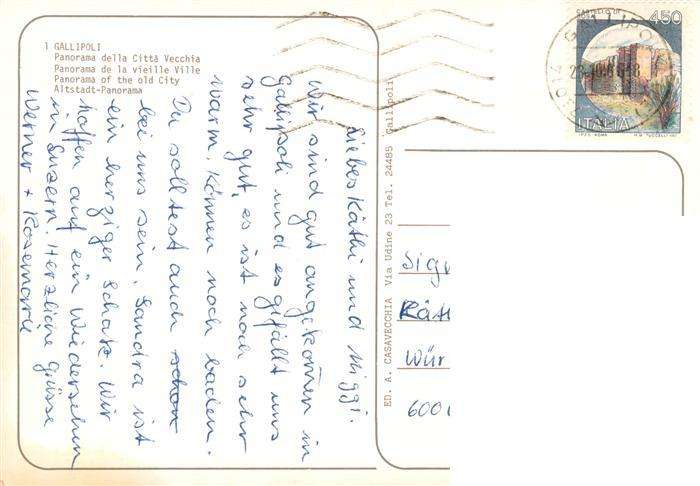 1 GALLIPOLI
Panorama della Città Vecchia
Panorama de la vieille Ville
Panorama of the old City
Altstadt-Panorama
Liebes Käthi und Miggi.
Wir sind gut angekommen in
Gallipoli und es gefällt uns
sehr gut, es ist noch sehr
warm. Können noch baden.
Du solltest auch schon
bei uns sein. Sandra ist
ein herziger Schatz. Wir
hoffen auf ein Wiedersehen
in Luzern. Herzliche Grüsse
Werner + Rosemarie
ED. A. CASAVECCHIA Via Udine 23 Tel. 24485 Gallipoli
CASTELLO DI
450
ITALIA
Sig
Käth
Wür
600